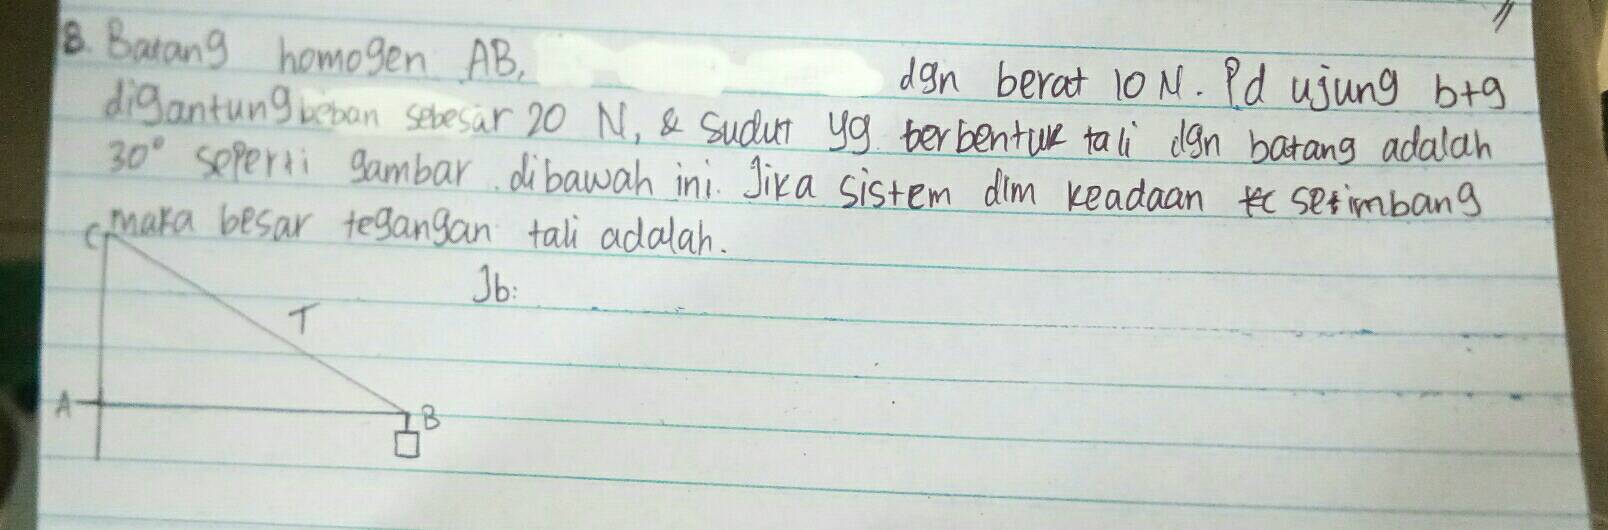 8. Batang homogen AB, dgn berat 10 N. Pd ujung btg
digantung beban sebesar 20 N, & sudut yg terbentuk tali dgn batang adalah
30° seperti gambar dibawah ini. Jika sistem dlm keadaan setimbang
maka besar tegangan tali adalah.
C
Jb:
T
A
B